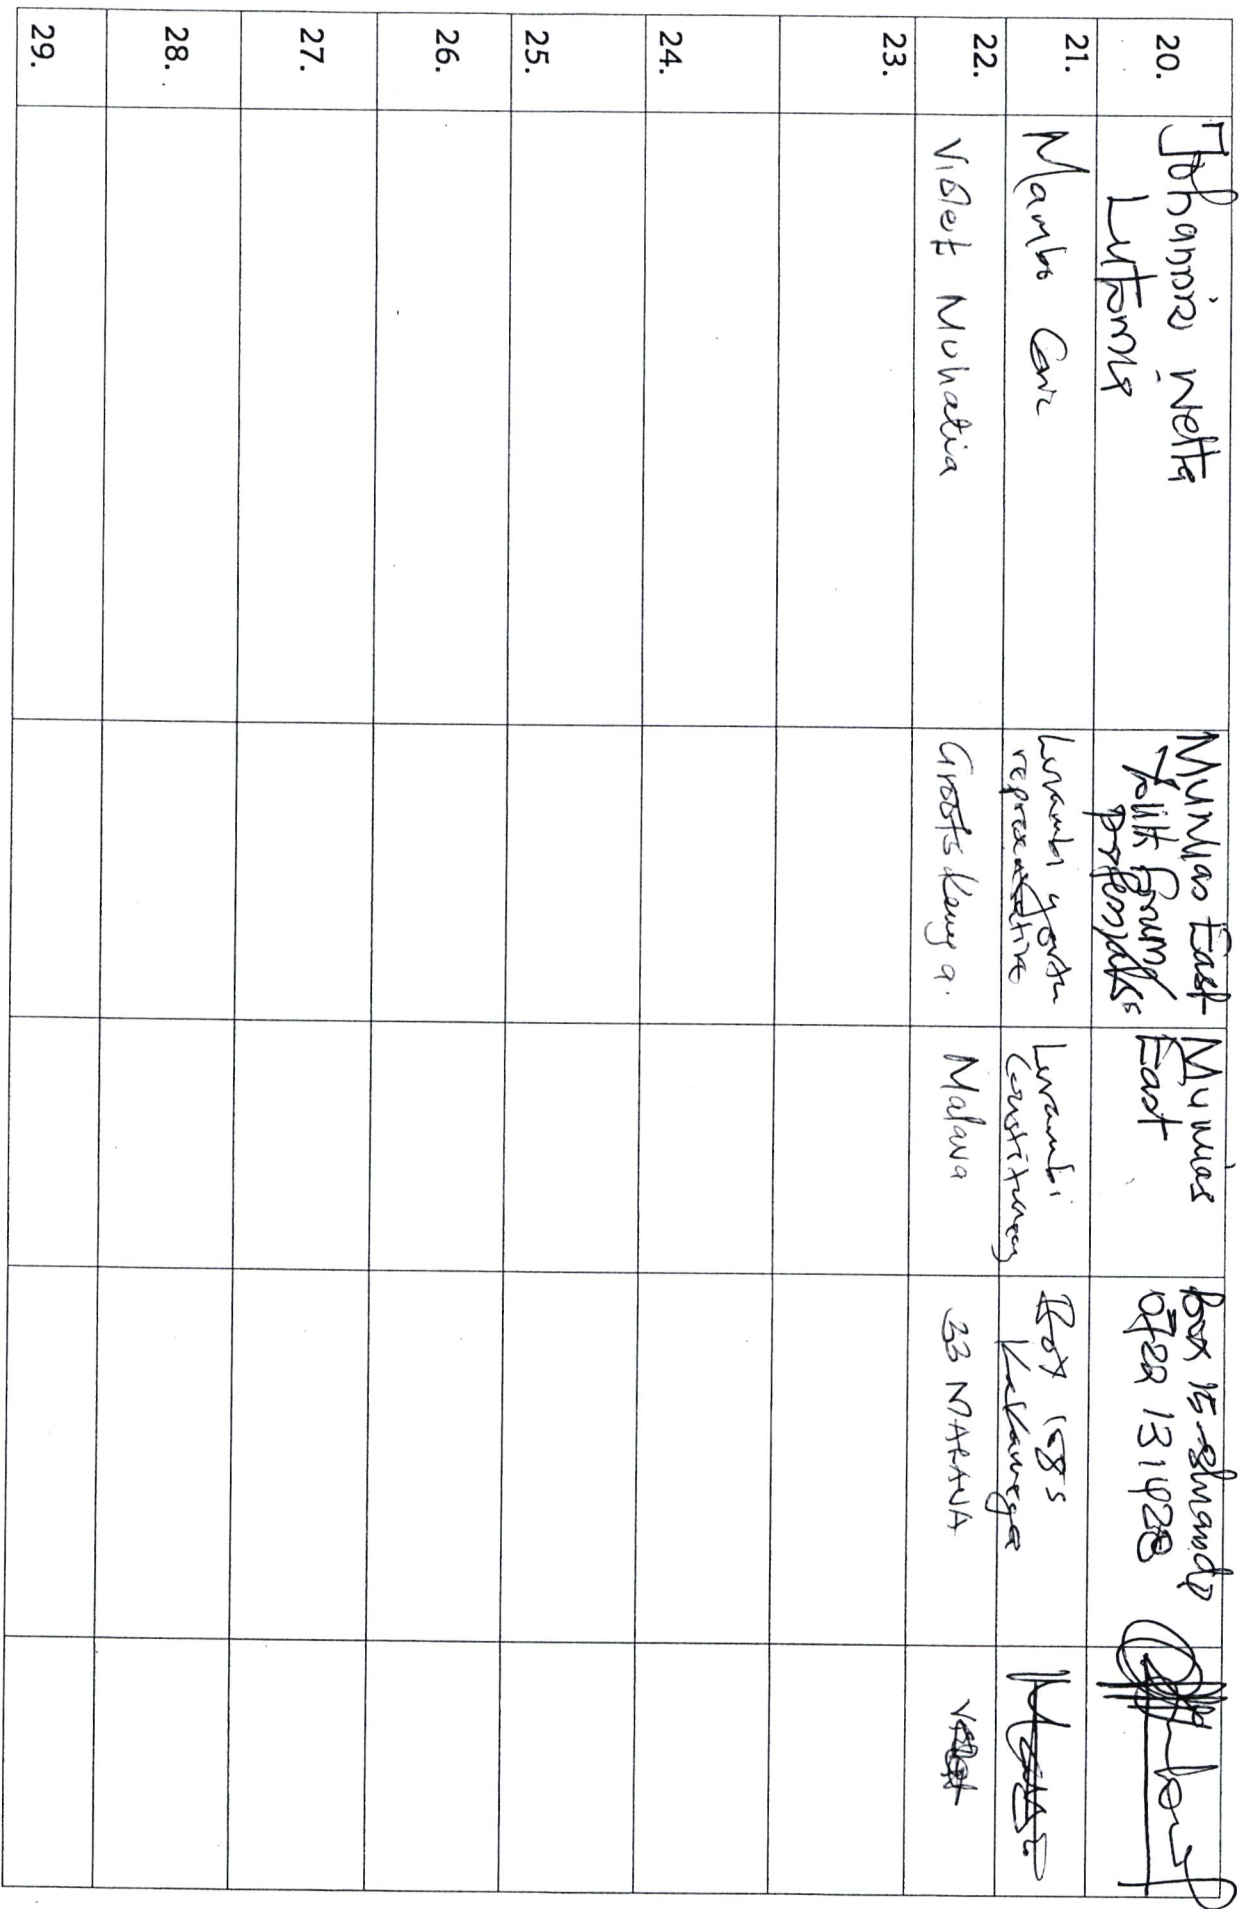 20.
Johannis Wetta
Mumias East
Forum
professionals
Mumias
East
Box 15-Shianda
0722 131428
21.
Mambo
Lurambi youth
representative
Lurambi
Constituency
Box 1585
Kakamega
22.
Violet Muhatia
Groots Kenya.
Malava
33 MARAVA
23.
24.
25.
26.
27.
28.
29.